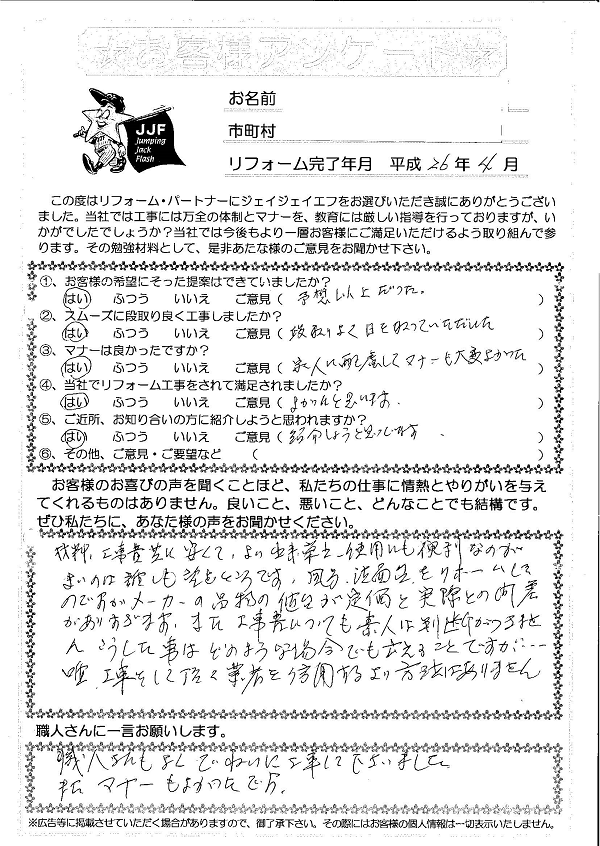 ☆お客様アンケート☆
JJF
Jumping
Jack
Flash
お名前
市町村
リフォーム完了年月 平成 26 年 4 月
この度はリフォーム・パートナーにジェイジェイエフをお選びいただき誠にありがとうござい
ました。当社では工事には万全の体制とマナーを、教育には厳しい指導を行っておりますが、い
かがでしたでしょうか?当社では今後もより一層お客様にご満足いただけるよう取り組んで参
ります。その勉強材料として、是非あたな様のご意見をお聞かせ下さい。
①、お客様の希望にそった提案はできていましたか?
はい ふつう いいえ ご意見( 予想以上だった。 )
②、スムーズに段取り良く工事しましたか?
はい ふつう いいえ ご意見( 段取りよく日を取っていただいた )
③、マナーは良かったですか?
はい ふつう いいえ ご意見( 家人に配慮してマナーも大変よかった )
④、当社でリフォーム工事をされて満足されましたか?
はい ふつう いいえ ご意見( よかったと思います. )
⑤、ご近所、お知り合いの方に紹介しようと思われますか?
はい ふつう いいえ ご意見( 紹介しようと思っています. )
⑥、その他、ご意見・ご要望など ( )
お客様のお喜びの声を聞くことほど、私たちの仕事に情熱とやりがいを与え
てくれるものはありません。良いこと、悪いこと、どんなことでも結構です。
ぜひ私たちに、あなた様の声をお聞かせください。
材料、工事費共に安くて、より出来栄え、使用にも便利なのが
よいのは誰しも望むところです。風呂、洗面台をリホームして
のですがメーカーの品物の値段が定価と実際との内差
がありすぎます。また工事費についても素人は判断がつきませ
ん こうした事はどのような場合でも云えることですが・・・
唯、工事をして頂く業者を信用するより方法はありません
職人さんに一言お願いします。
職人さんもよくていねいに工事して下さいました
又 マナーもよかったです.
※広告等に掲載させていただく場合がありますので、御了承下さい。その際にはお客様の個人情報は一切表示いたしません。